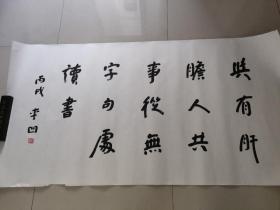 與有肝
膽人共
事從無
字句處
讀書
丙戌 李凹